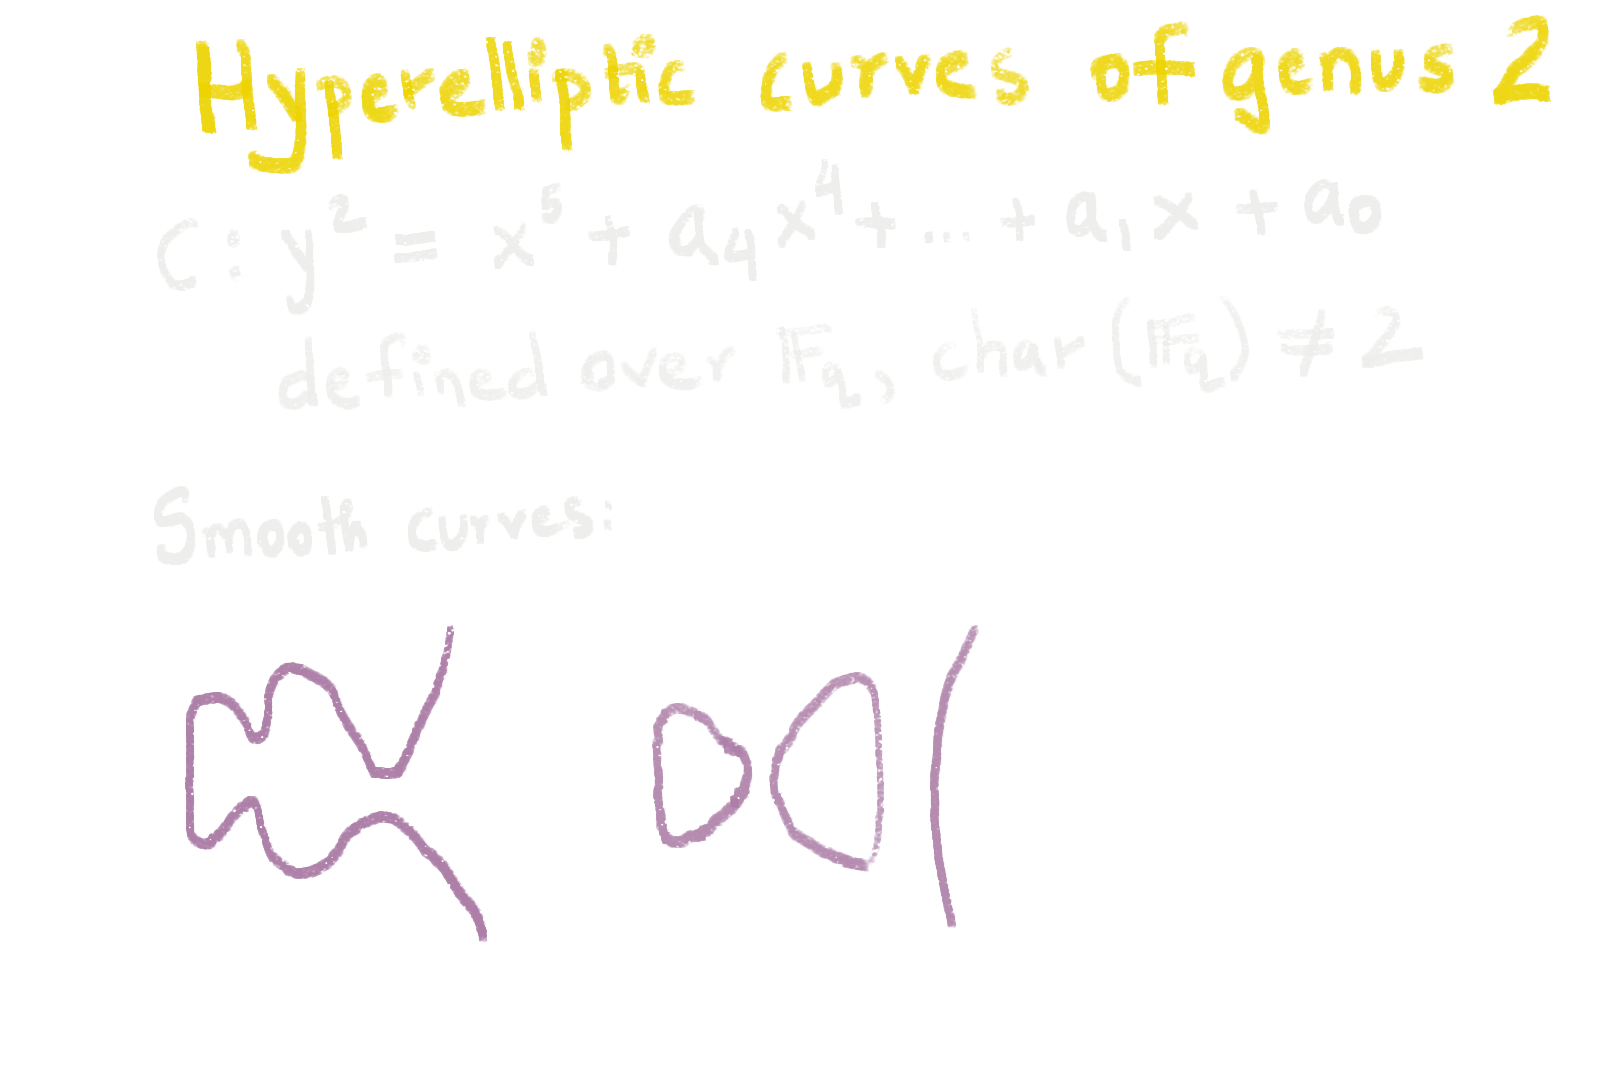 Hyperelliptic curves of genus 2
C: y² = x⁵ + a₄x⁴ + ... + a₁x + a₀
defined over 𝔽_q, char(𝔽_q) ≠ 2
Smooth curves: